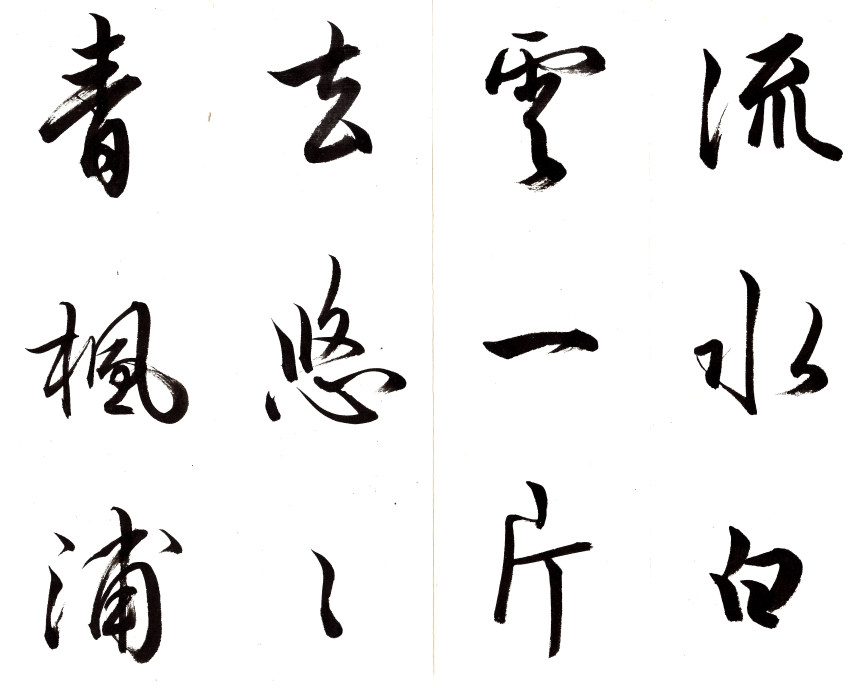 流水白
雲一片
去悠〻
青楓浦